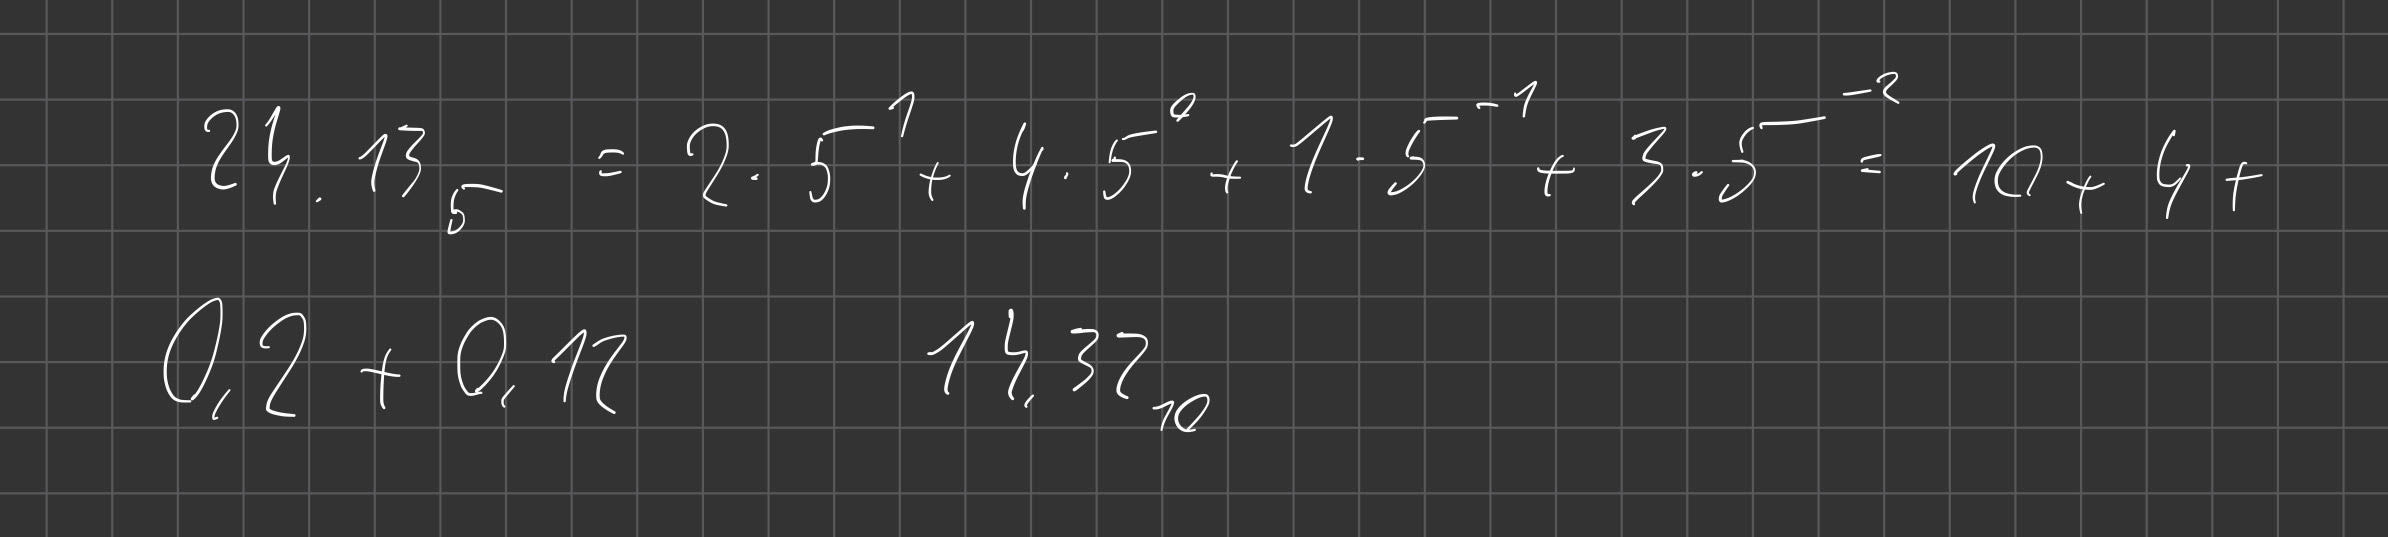 24.13₅ = 2·5¹ + 4·5⁰ + 1·5⁻¹ + 3·5⁻² = 10 + 4 +
0,2 + 0,12 14,32₁₀